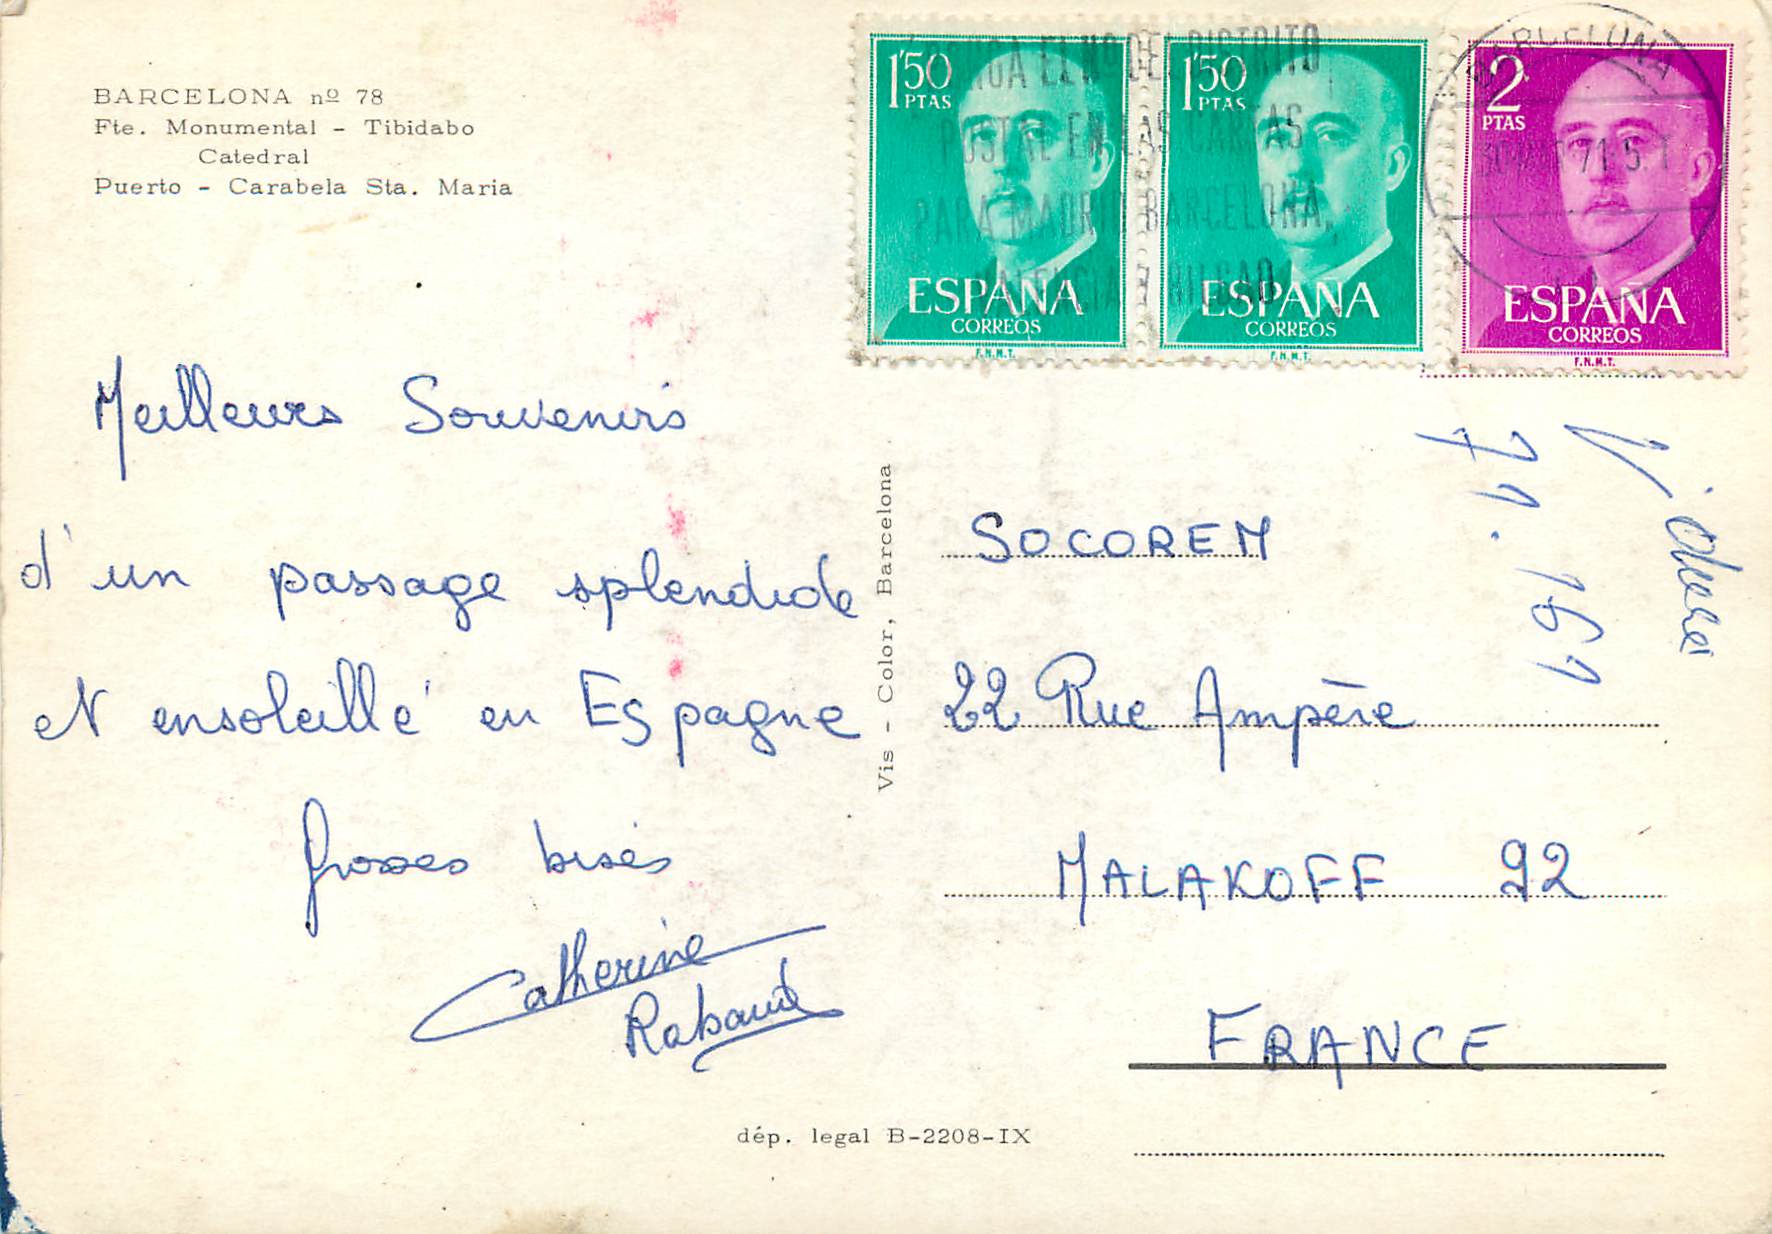 BARCELONA nº 78
Fte. Monumental - Tibidabo
Catedral
Puerto - Carabela Sta. Maria
1'50
PTAS
ESPAÑA
CORREOS
F.N.M.T.
1'50
PTAS
ESPAÑA
CORREOS
F.N.M.T.
2
PTAS
ESPAÑA
CORREOS
F.N.M.T.
EL Nº DEL DISTRITO
POSTAL EN LAS CARTAS
PARA MADRID, BARCELONA,
VALENCIA Y BILBAO
BARCELONA
71
Meilleurs Souvenirs
d'un passage splendide
et ensoleillé en Espagne
Grosses bises
Catherine
Rabaud
Vis - Color, Barcelona
SOCOREM
22 Rue Ampère
MALAKOFF 92
FRANCE
dép. legal B-2208-IX